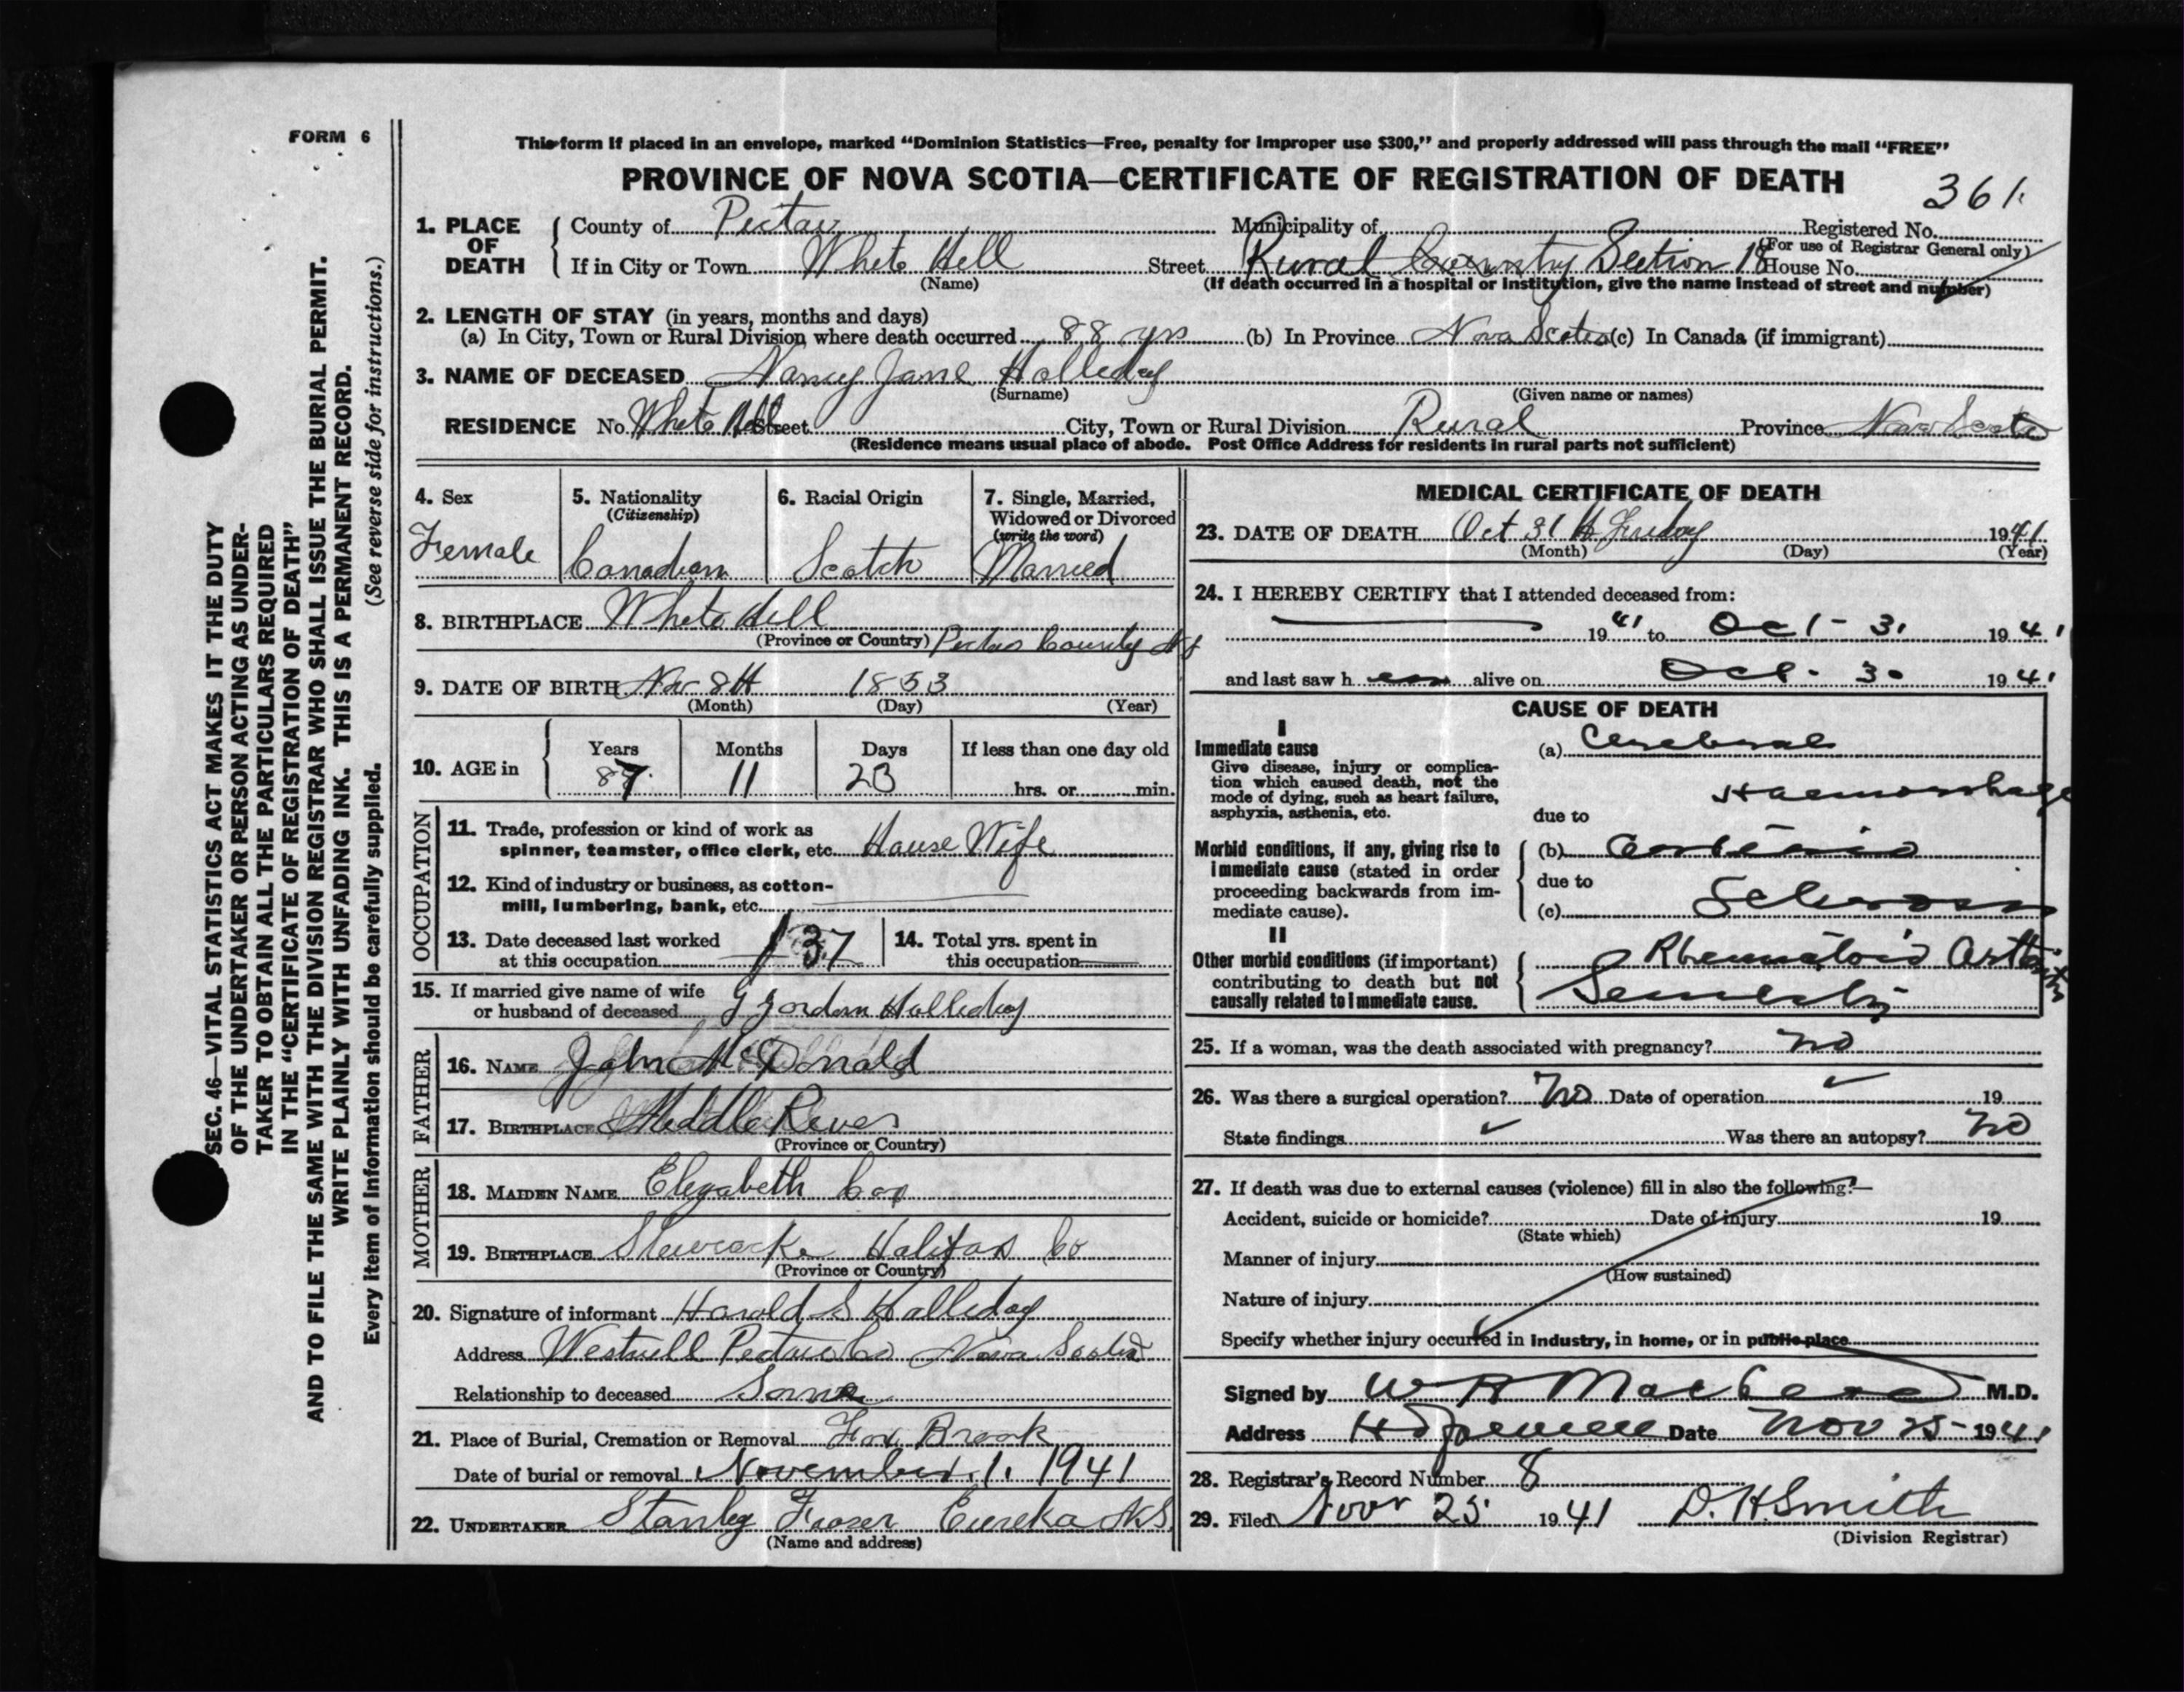 FORM 6
This form if placed in an envelope, marked “Dominion Statistics—Free, penalty for improper use $300,” and properly addressed will pass through the mail “FREE”
PROVINCE OF NOVA SCOTIA—CERTIFICATE OF REGISTRATION OF DEATH
361
1. PLACE OF DEATH County of Pictou Municipality of Registered No.
(For use of Registrar General only)
If in City or Town White Hill Street Rural Country Section 18 House No.
(Name) (If death occurred in a hospital or institution, give the name instead of street and number)
2. LENGTH OF STAY (in years, months and days)
(a) In City, Town or Rural Division where death occurred 88 yrs (b) In Province Nova Scotia (c) In Canada (if immigrant)
3. NAME OF DECEASED Nancy Jane Halliday
(Surname) (Given name or names)
RESIDENCE No. White Hill Street City, Town or Rural Division Rural Province Nova Scotia
(Residence means usual place of abode. Post Office Address for residents in rural parts not sufficient)
4. Sex
Female
5. Nationality
(Citizenship)
Canadian
6. Racial Origin
Scotch
7. Single, Married,
Widowed or Divorced
(write the word)
Married
8. BIRTHPLACE White Hill
(Province or Country) Pictou County N S
9. DATE OF BIRTH Nov 8th 1853
(Month) (Day) (Year)
10. AGE in Years Months Days If less than one day old
87 11 23 hrs. or min.
OCCUPATION
11. Trade, profession or kind of work as
spinner, teamster, office clerk, etc. House Wife
12. Kind of industry or business, as cotton-
mill, lumbering, bank, etc.
13. Date deceased last worked
at this occupation 37
14. Total yrs. spent in
this occupation
15. If married give name of wife
or husband of deceased Gordon Halliday
FATHER
16. NAME John McDonald
17. BIRTHPLACE Middle River
(Province or Country)
MOTHER
18. MAIDEN NAME Elizabeth
19. BIRTHPLACE Halifax Co
(Province or Country)
20. Signature of informant Harold S Halliday
Address Westville Pictou Co Nova Scotia
Relationship to deceased Son
21. Place of Burial, Cremation or Removal Fox Brook
Date of burial or removal November 1. 1941
22. UNDERTAKER Stanley Fraser Eureka N.S.
(Name and address)
MEDICAL CERTIFICATE OF DEATH
23. DATE OF DEATH Oct 31 st Friday 1941
(Month) (Day) (Year)
24. I HEREBY CERTIFY that I attended deceased from:
1941 to Oct - 31 1941
and last saw h er alive on Oct - 30 1941
CAUSE OF DEATH
I
Immediate cause
Give disease, injury or complica-
tion which caused death, not the
mode of dying, such as heart failure,
asphyxia, asthenia, etc.
(a) Cerebral
Haemorrhage
due to
Morbid conditions, if any, giving rise to
immediate cause (stated in order
proceeding backwards from im-
mediate cause).
(b) Arterio
due to
(c) Sclerosis
II
Other morbid conditions (if important)
contributing to death but not
causally related to immediate cause.
Rheumatoid Arthritis
Senility
25. If a woman, was the death associated with pregnancy? No
26. Was there a surgical operation? No Date of operation 19
State findings Was there an autopsy? No
27. If death was due to external causes (violence) fill in also the following:—
Accident, suicide or homicide? Date of injury 19
(State which)
Manner of injury
(How sustained)
Nature of injury
Specify whether injury occurred in industry, in home, or in public place
Signed by M.D.
Address Hopewell Date Nov 25- 1941
28. Registrar's Record Number 8
29. Filed Nov 25 1941 D. H. Smith
(Division Registrar)
SEC. 46—VITAL STATISTICS ACT MAKES IT THE DUTY
OF THE UNDERTAKER OR PERSON ACTING AS UNDER-
TAKER TO OBTAIN ALL THE PARTICULARS REQUIRED
IN THE “CERTIFICATE OF REGISTRATION OF DEATH”
AND TO FILE THE SAME WITH THE DIVISION REGISTRAR WHO SHALL ISSUE THE BURIAL PERMIT.
WRITE PLAINLY WITH UNFADING INK. THIS IS A PERMANENT RECORD.
Every item of information should be carefully supplied. (See reverse side for instructions.)